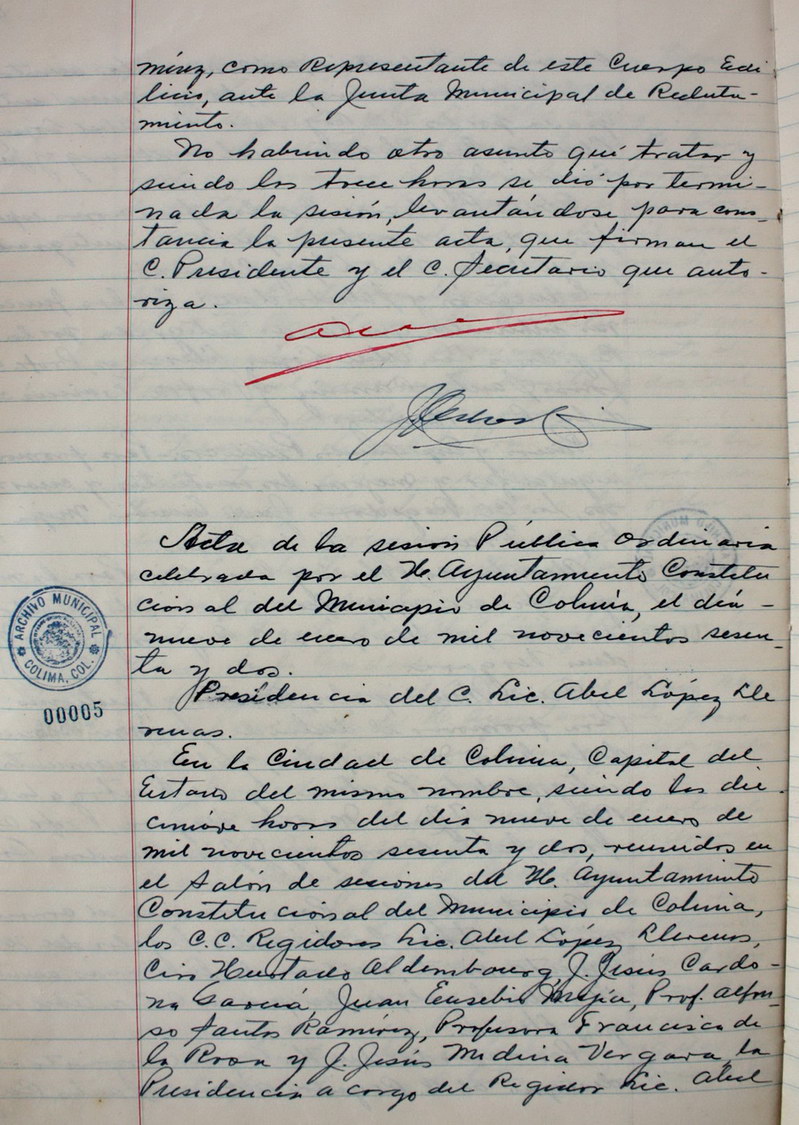 mírez, como Representante de este Cuerpo Edi-
licio, ante la Junta Municipal de Recluta-
miento.
No habiendo otro asunto qué tratar y
siendo las trece horas se dió por termi-
nada la sesión, levantándose para cons-
tancia la presente acta, que firman el
C. Presidente y el C. Secretario que auto-
riza.
Acta de la sesión Pública Ordinaria
celebrada por el H. Ayuntamiento Constitu
cional del Municipio de Colima, el día -
nueve de enero de mil novecientos sesen-
ta y dos.
Presidencia del C. Lic. Abel López Lle
renas.
En la Ciudad de Colima, Capital del
Estado del mismo nombre, siendo las die-
cinueve horas del día nueve de enero de
mil novecientos sesenta y dos, reunidos en
el Salón de sesiones del H. Ayuntamiento
Constitucional del Municipio de Colima,
los C.C. Regidores Lic. Abel López Llerenas,
Ciro Hurtado Aldembourg, J. Jesús Cardo-
na García, Juan Eusebio Mejía, Prof. Alfon-
so Santos Ramírez, Profesora Francisca de
la Rosa y J. Jesús Medina Vergara, la
Presidencia a cargo del Regidor Lic. Abel
ARCHIVO MUNICIPAL
COLIMA, COL.
00005